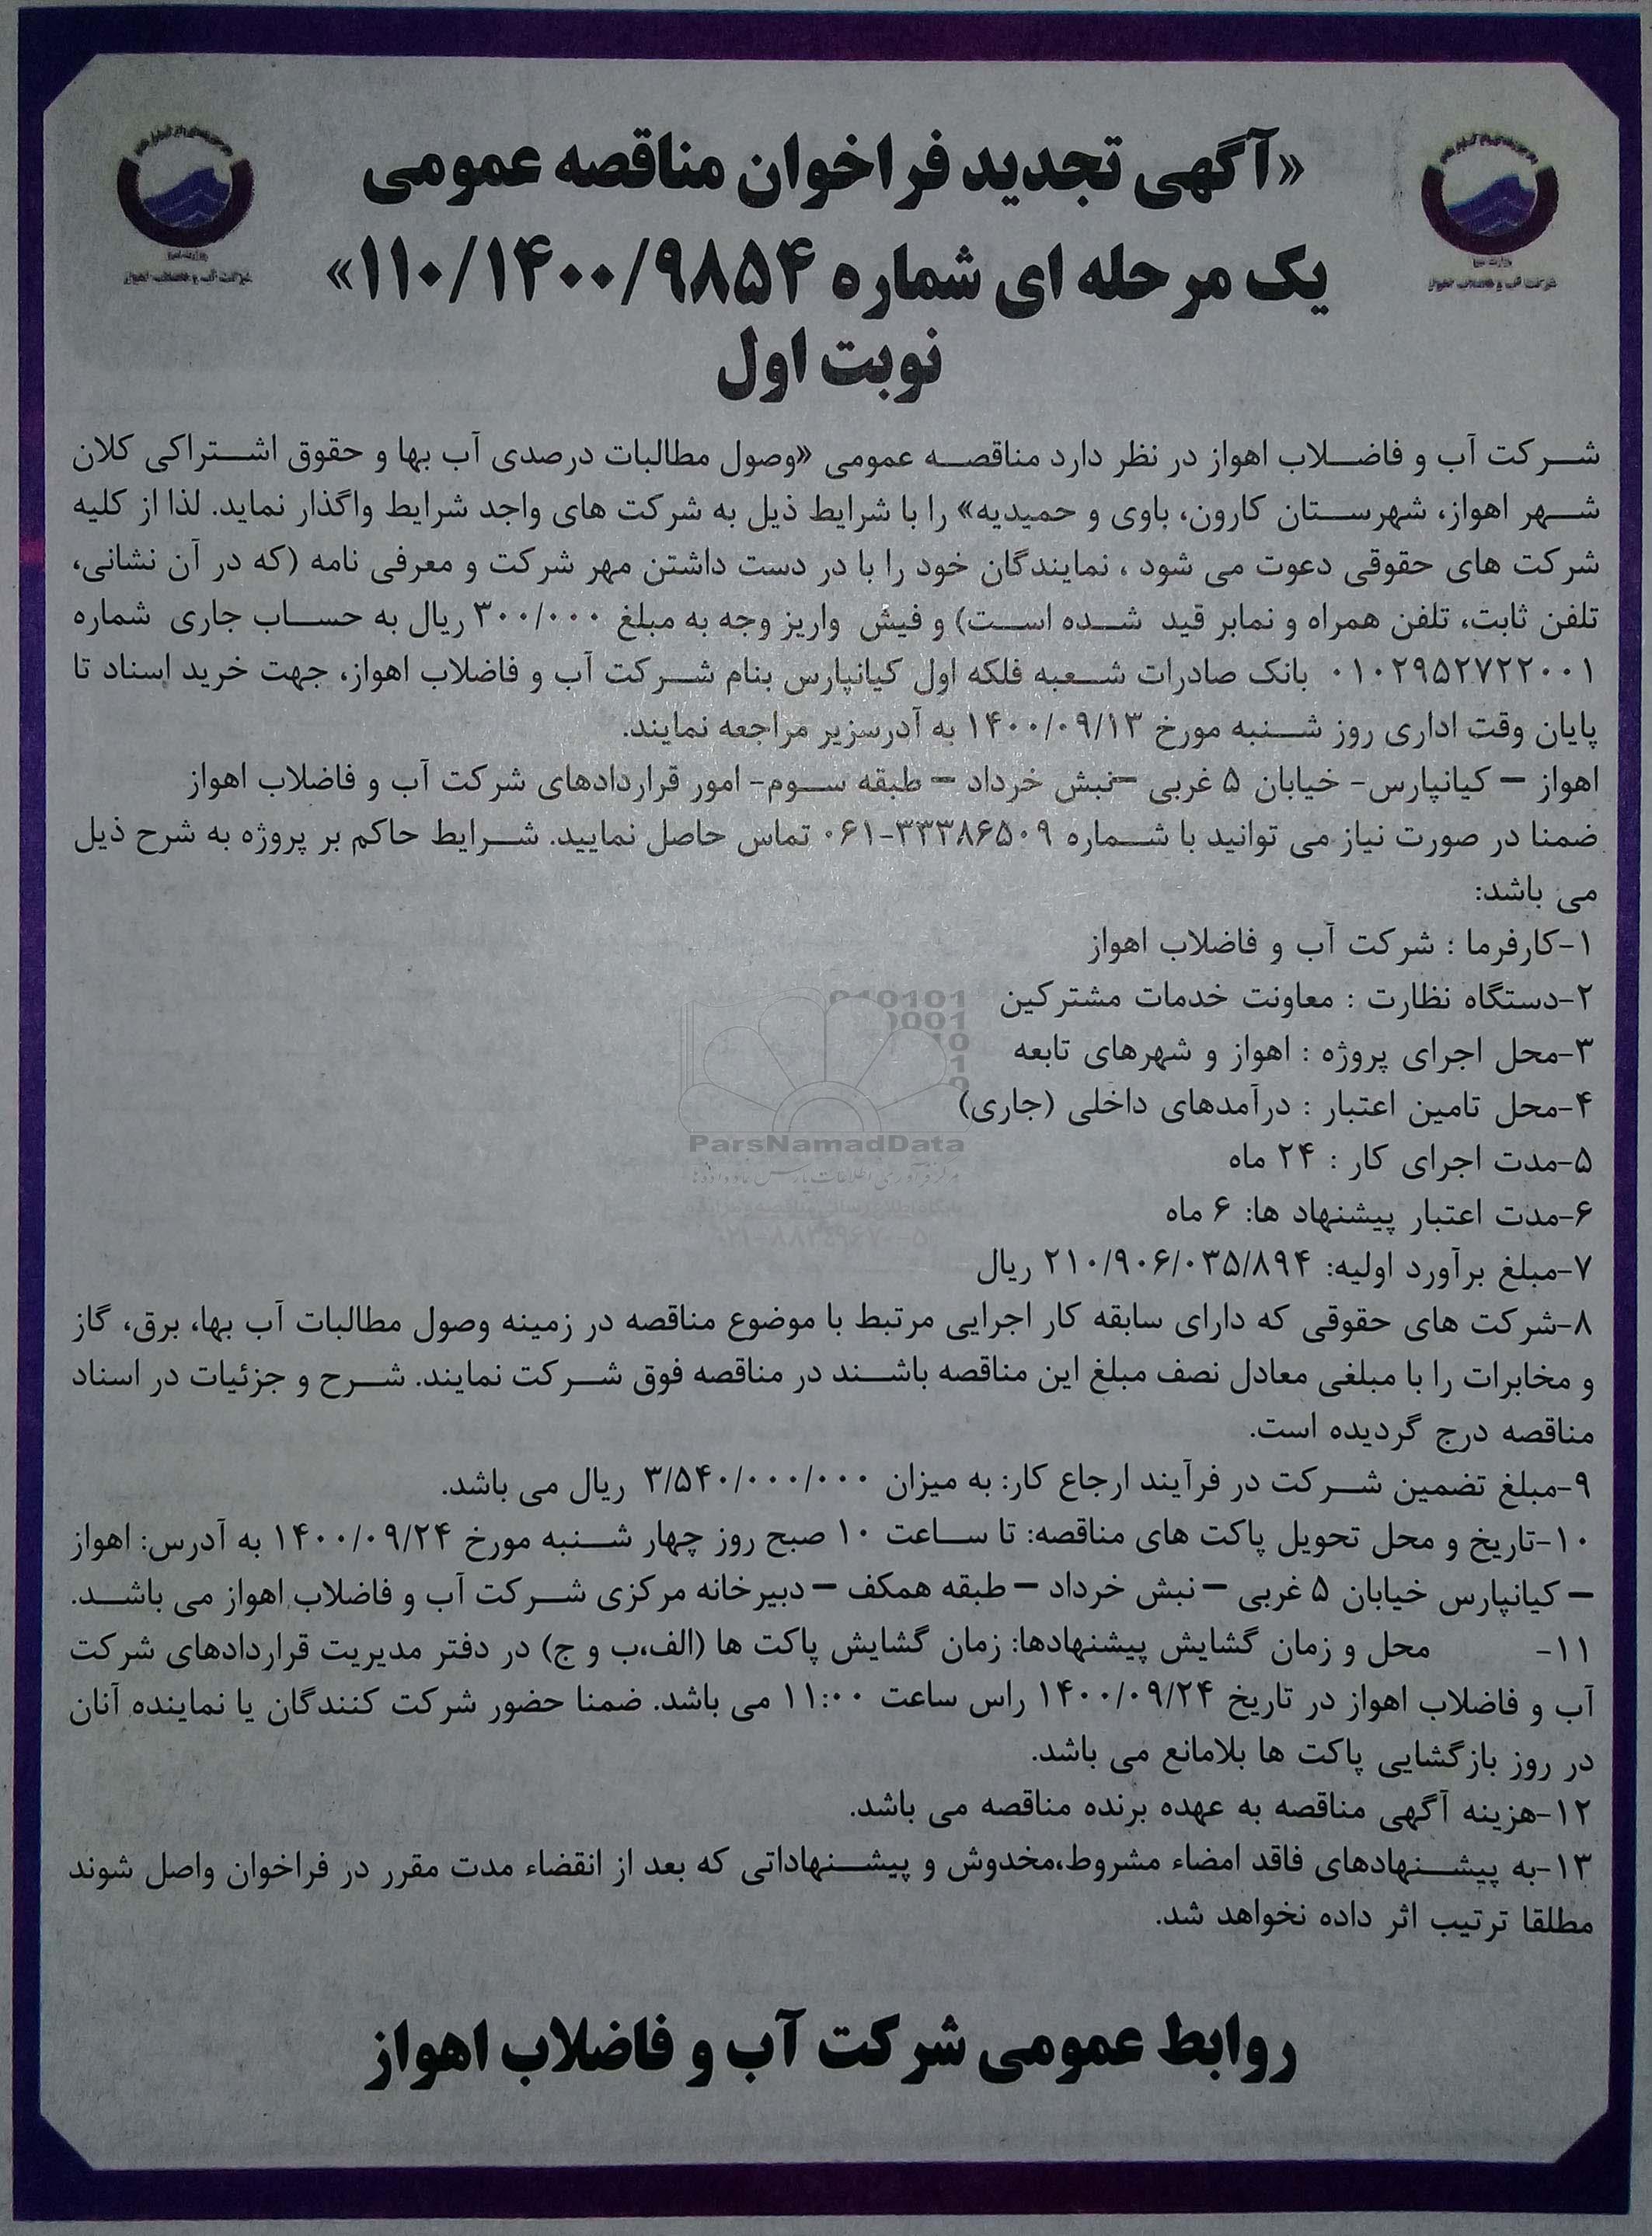 «آگهی تجدید فراخوان مناقصه عمومی
یک مرحله ای شماره ۱۱۰/۱۴۰۰/۹۸۵۴»
نوبت اول
وزارت نیرو
شرکت آب و فاضلاب اهواز
وزارت نیرو
شرکت آب و فاضلاب اهواز
شرکت آب و فاضلاب اهواز در نظر دارد مناقصه عمومی «وصول مطالبات درصدی آب بها و حقوق اشتراکی کلان
شهر اهواز، شهرستان کارون، باوی و حمیدیه» را با شرایط ذیل به شرکت های واجد شرایط واگذار نماید. لذا از کلیه
شرکت های حقوقی دعوت می شود ، نمایندگان خود را با در دست داشتن مهر شرکت و معرفی نامه (که در آن نشانی،
تلفن ثابت، تلفن همراه و نمابر قید شده است) و فیش واریز وجه به مبلغ ۳۰۰/۰۰۰ ریال به حساب جاری شماره
۰۱۰۲۹۵۲۷۲۲۰۰۱ بانک صادرات شعبه فلکه اول کیانپارس بنام شرکت آب و فاضلاب اهواز، جهت خرید اسناد تا
پایان وقت اداری روز شنبه مورخ ۱۴۰۰/۰۹/۱۳ به آدرسزیر مراجعه نمایند.
اهواز – کیانپارس- خیابان ۵ غربی –نبش خرداد – طبقه سوم- امور قراردادهای شرکت آب و فاضلاب اهواز
ضمنا در صورت نیاز می توانید با شماره ۳۳۳۸۶۵۰۹-۰۶۱ تماس حاصل نمایید. شرایط حاکم بر پروژه به شرح ذیل
می باشد:
۱-کارفرما : شرکت آب و فاضلاب اهواز
۲-دستگاه نظارت : معاونت خدمات مشترکین
۳-محل اجرای پروژه : اهواز و شهرهای تابعه
۴-محل تامین اعتبار : درآمدهای داخلی (جاری)
ParsNamadData
۵-مدت اجرای کار : ۲۴ ماه
۶-مدت اعتبار پیشنهاد ها: ۶ ماه
۷-مبلغ برآورد اولیه: ۲۱۰/۹۰۶/۰۳۵/۸۹۴ ریال
۸-شرکت های حقوقی که دارای سابقه کار اجرایی مرتبط با موضوع مناقصه در زمینه وصول مطالبات آب بها، برق، گاز
و مخابرات را با مبلغی معادل نصف مبلغ این مناقصه باشند در مناقصه فوق شرکت نمایند. شرح و جزئیات در اسناد
مناقصه درج گردیده است.
۹-مبلغ تضمین شرکت در فرآیند ارجاع کار: به میزان ۳/۵۴۰/۰۰۰/۰۰۰ ریال می باشد.
۱۰-تاریخ و محل تحویل پاکت های مناقصه: تا ساعت ۱۰ صبح روز چهار شنبه مورخ ۱۴۰۰/۰۹/۲۴ به آدرس: اهواز
– کیانپارس خیابان ۵ غربی – نبش خرداد – طبقه همکف – دبیرخانه مرکزی شرکت آب و فاضلاب اهواز می باشد.
۱۱- محل و زمان گشایش پیشنهادها: زمان گشایش پاکت ها (الف،ب و ج) در دفتر مدیریت قراردادهای شرکت
آب و فاضلاب اهواز در تاریخ ۱۴۰۰/۰۹/۲۴ راس ساعت ۱۱:۰۰ می باشد. ضمنا حضور شرکت کنندگان یا نماینده آنان
در روز بازگشایی پاکت ها بلامانع می باشد.
۱۲-هزینه آگهی مناقصه به عهده برنده مناقصه می باشد.
۱۳-به پیشنهادهای فاقد امضاء مشروط،مخدوش و پیشنهاداتی که بعد از انقضاء مدت مقرر در فراخوان واصل شوند
مطلقا ترتیب اثر داده نخواهد شد.
روابط عمومی شرکت آب و فاضلاب اهواز